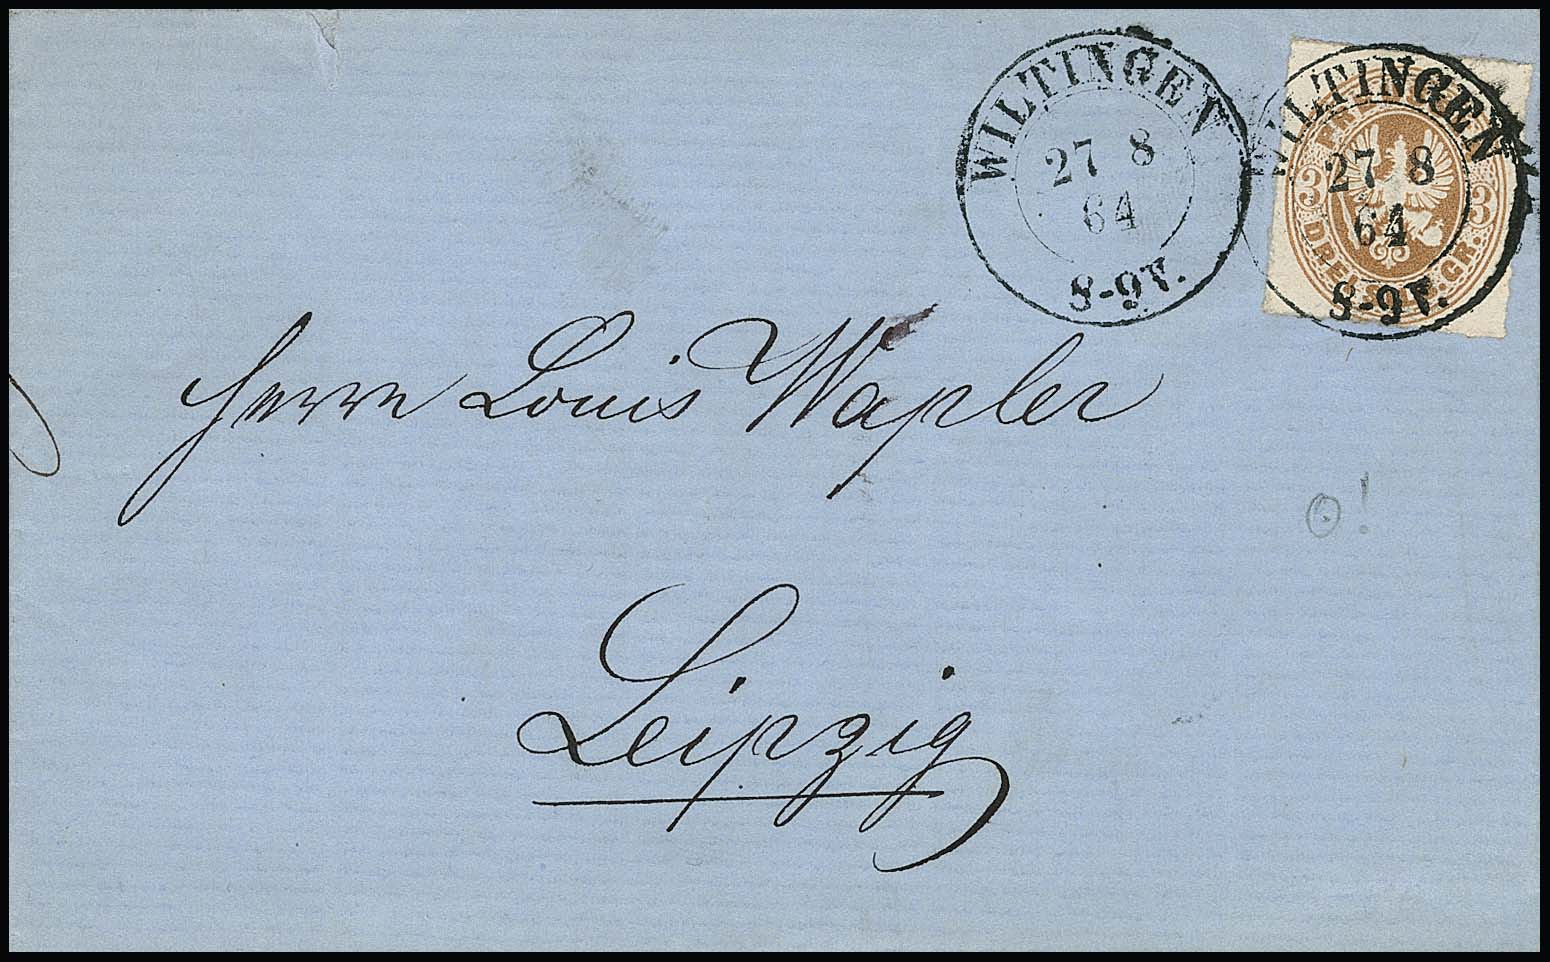 WILTINGEN
27 8
64
8-9V.
WILTINGEN
27 8
64
8-9V.
3 DREI SILB. GR. 3
Herrn Louis Wapler
Leipzig